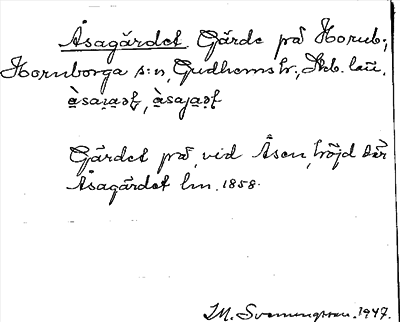 Åsagärdet Gärde på Hornb.,
Hornborga s:n, Gudhems hr., Skb. län.
Gärdet på, vid Åsen, höjd där
Åsagärdet lm. 1858.
1947.